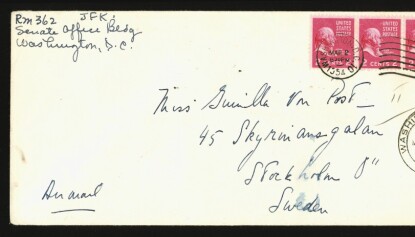 Rm 362 JFK,
Senate Office Bldg
Washington, D.C.
UNITED STATES POSTAGE
UNITED STATES POSTAGE
2 CENTS
Miss Gunilla Von Post
45 Skyrmiansgatan
Stockholm Ö"
Sweden
Air mail
WASHI